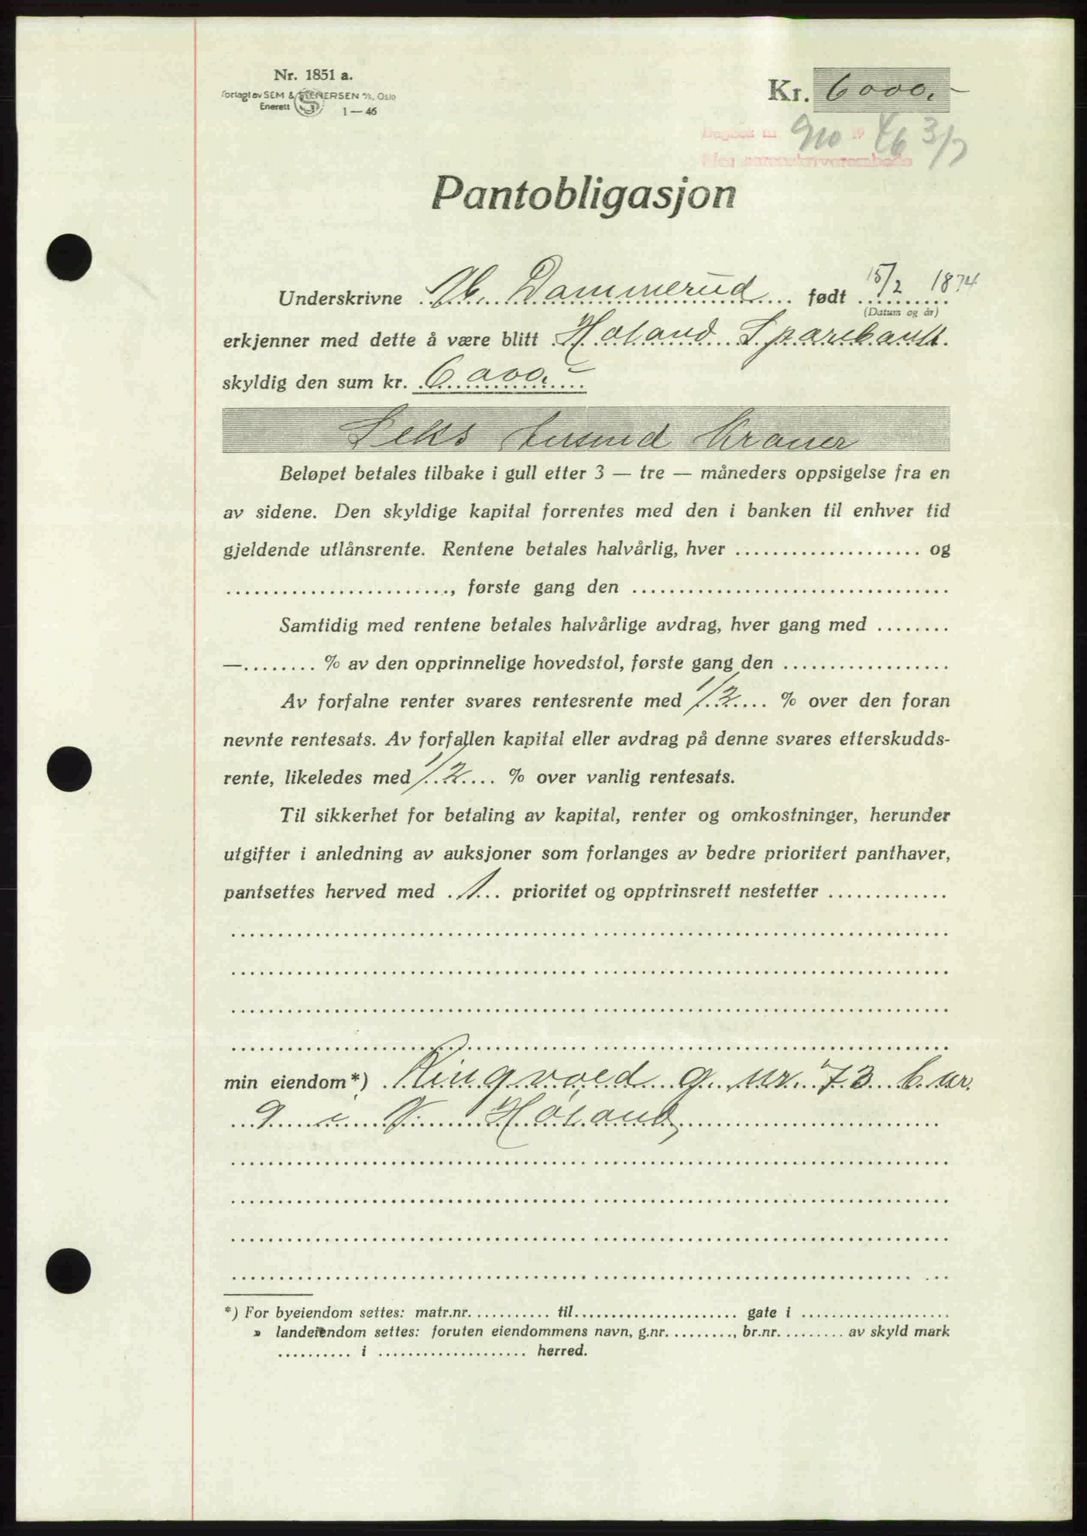 Nr. 1851 a.
Forlagt av SEM & STENERSEN A/S, Oslo
Enerett S 1—46
Kr. 6000,-
Dagbok nr. 910 19 46 3/7
Nes sorenskriverembede
Pantobligasjon
Underskrivne Dammerud født 15/2 1874
(Datum og år)
erkjenner med dette å være blitt Høland Sparebank
skyldig den sum kr. 6000,-
Seks tusend Kroner
Beløpet betales tilbake i gull etter 3 — tre — måneders oppsigelse fra en
av sidene. Den skyldige kapital forrentes med den i banken til enhver tid
gjeldende utlånsrente. Rentene betales halvårlig, hver .................... og
........................, første gang den ..................................
Samtidig med rentene betales halvårlige avdrag, hver gang med ........
—........ % av den opprinnelige hovedstol, første gang den ..................
Av forfalne renter svares rentesrente med 1/2 % over den foran
nevnte rentesats. Av forfallen kapital eller avdrag på denne svares etterskudds-
rente, likeledes med 1/2 % over vanlig rentesats.
Til sikkerhet for betaling av kapital, renter og omkostninger, herunder
utgifter i anledning av auksjoner som forlanges av bedre prioritert panthaver,
pantsettes herved med 1 prioritet og opptrinsrett nestetter .............
min eiendom*) Ringvold g. nr. 73 b nr.
9 i V. Høland
*) For byeiendom settes: matr.nr. .......... til .................... gate i ....................
» landeiendom settes: foruten eiendommens navn, g.nr. ........, br.nr. ........ av skyld mark
.......... i ................... herred.